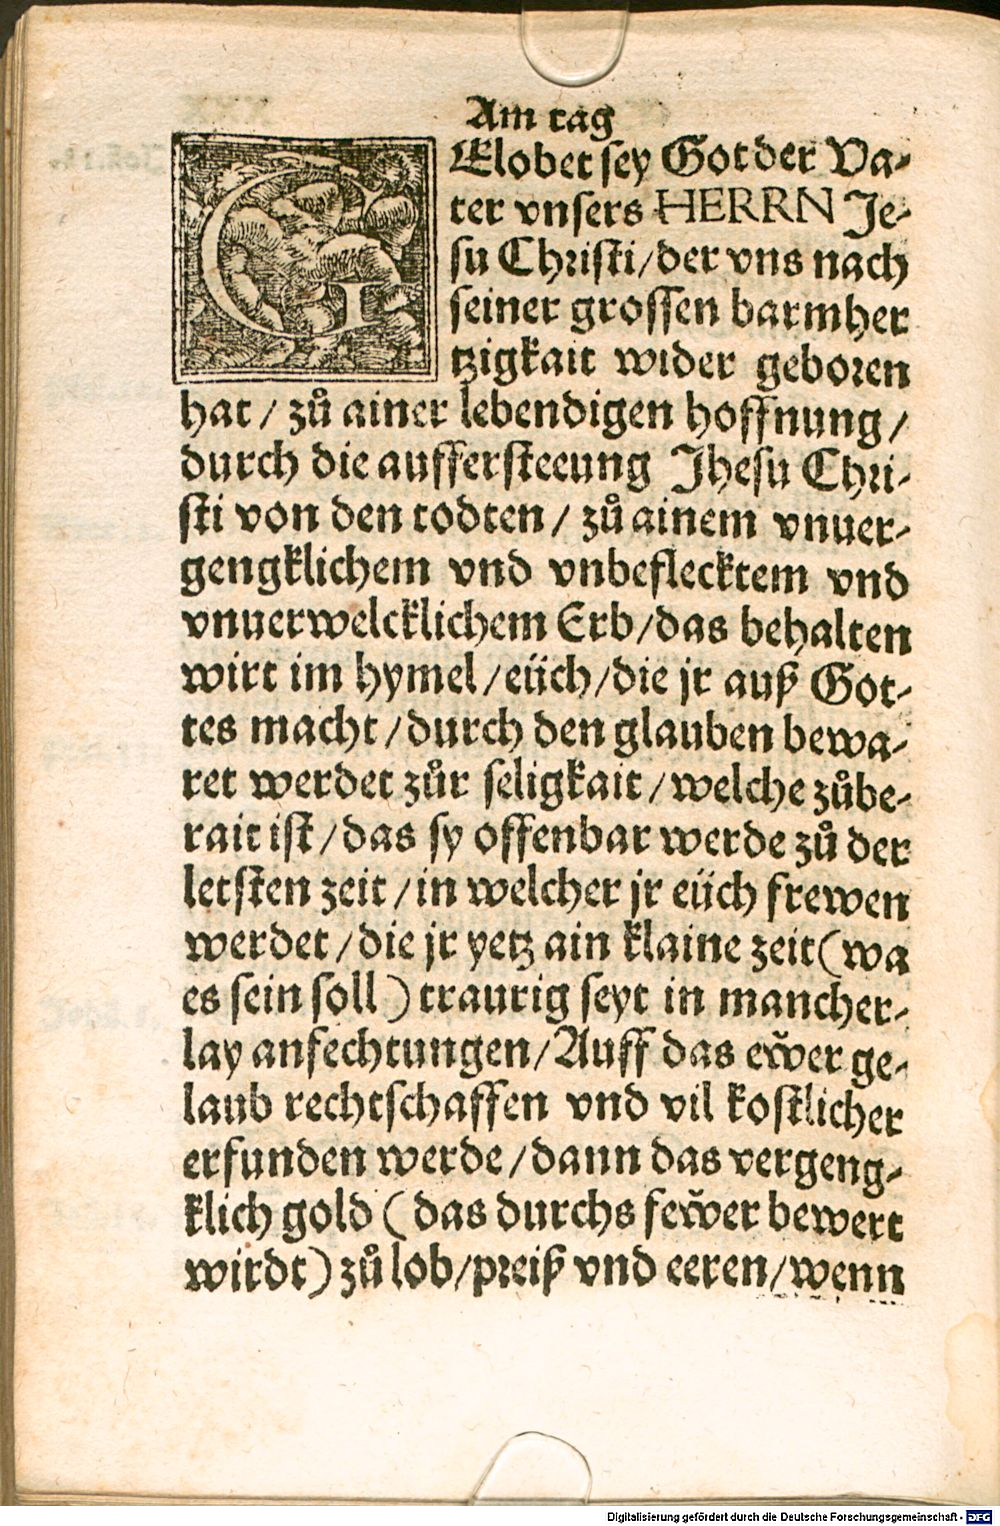 Am tag
GElobet sey Got der Va-
ter vnsers HERRN Je-
su Christi/der vns nach
seiner grossen barmher
tzigkait wider geboren
hat/ zů ainer lebendigen hoffnung/
durch die auffersteeung Jhesu Chri-
sti von den todten/ zů ainem vnuer-
gengklichem vnd vnbeflecktem vnd
vnuerwelcklichem Erb/das behalten
wirt im hymel/eüch/die jr auß Got-
tes macht/durch den glauben bewa-
ret werdet zůr seligkait/welche zůbe-
rait ist/das sy offenbar werde zů der
letsten zeit/in welcher jr eüch frewen
werdet/die jr yetz ain klaine zeit(wa
es sein soll) traurig seyt in mancher-
lay anfechtungen/Auff das eẅer ge-
laub rechtschaffen vnd vil kostlicher
erfunden werde/dann das vergeng-
klich gold (das durchs feẅer bewert
wirdt) zů lob/preiß vnd eeren/wenn
Digitalisierung gefördert durch die Deutsche Forschungsgemeinschaft - DFG